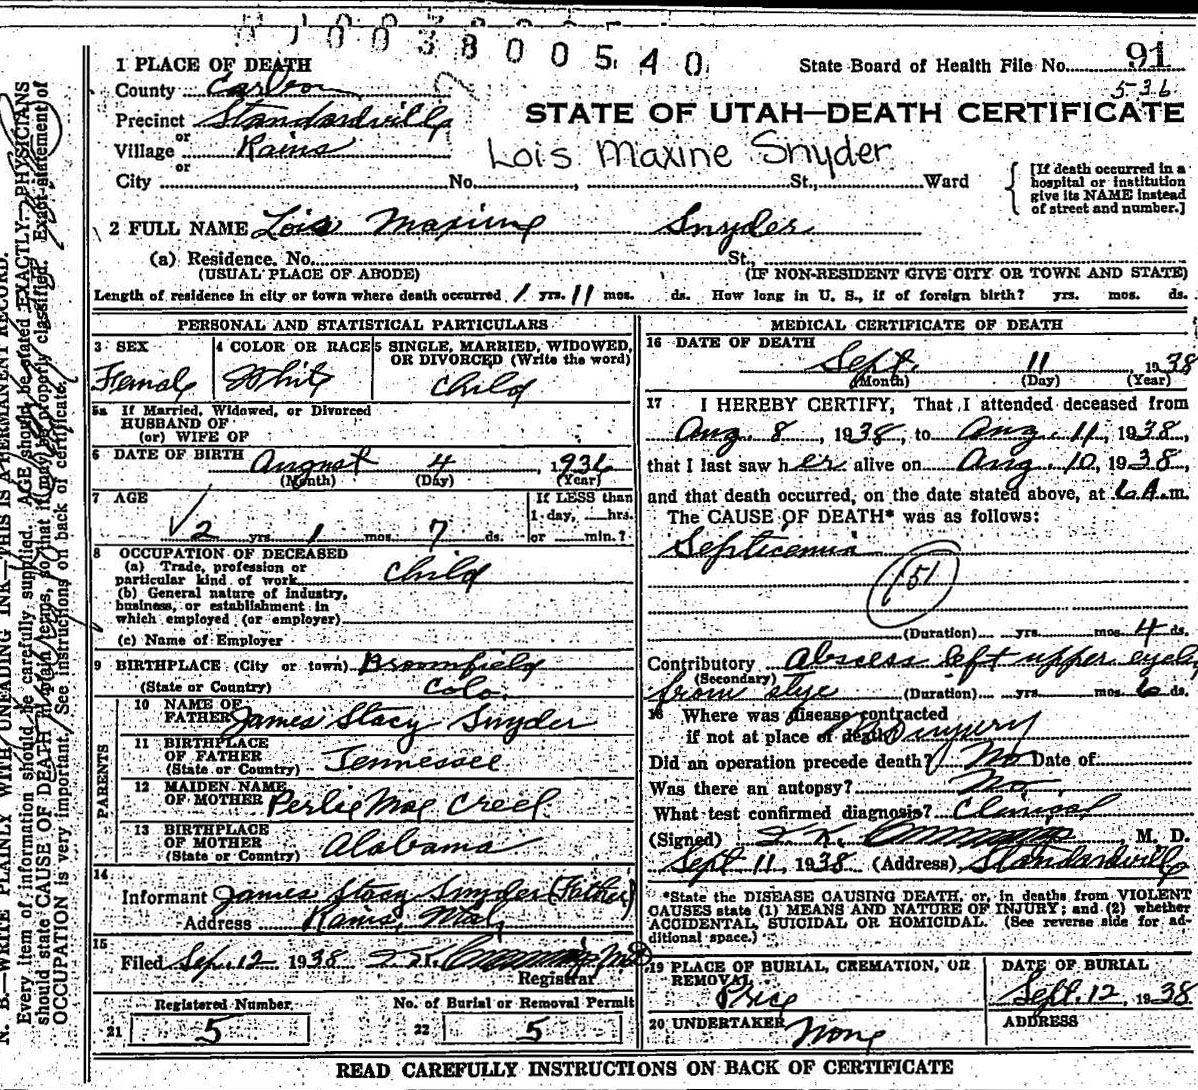 003800540
1 PLACE OF DEATH
State Board of Health File No. 91
536
County Carbon
Precinct Standardville
or
Village Rains
or
City No. St., Ward
STATE OF UTAH—DEATH CERTIFICATE
Lois Maxine Snyder
[If death occurred in a hospital or institution give its NAME instead of street and number.]
2 FULL NAME Lois Maxine Snyder
(a) Residence. No. St.,
(USUAL PLACE OF ABODE) (IF NON-RESIDENT GIVE CITY OR TOWN AND STATE)
Length of residence in city or town where death occurred 1 yrs. 11 mos. ds. How long in U. S., if of foreign birth? yrs. mos. ds.
PERSONAL AND STATISTICAL PARTICULARS
3 SEX
Female
4 COLOR OR RACE
White
5 SINGLE, MARRIED, WIDOWED, OR DIVORCED (Write the word)
child
5a If Married, Widowed, or Divorced
HUSBAND OF
(or) WIFE OF
6 DATE OF BIRTH August 4, 1936
(Month) (Day) (Year)
7 AGE
2 yrs. 1 mos. 7 ds.
If LESS than
1 day, hrs.
or min.?
8 OCCUPATION OF DECEASED
(a) Trade, profession or
particular kind of work child
(b) General nature of industry,
business, or establishment in
which employed (or employer)
(c) Name of Employer
9 BIRTHPLACE (City or town) Broomfield
(State or Country) Colo.
PARENTS
10 NAME OF FATHER James Stacy Snyder
11 BIRTHPLACE OF FATHER (State or Country) Tennessee
12 MAIDEN NAME OF MOTHER Perlie Mae Creel
13 BIRTHPLACE OF MOTHER (State or Country) Alabama
14
Informant James Stacy Snyder (Father)
Address Rains, Utah
15
Filed Sep. 12 1938
Registrar
Registered Number
21 5
No. of Burial or Removal Permit
22 5
MEDICAL CERTIFICATE OF DEATH
16 DATE OF DEATH
Sept. 11, 1938
(Month) (Day) (Year)
17 I HEREBY CERTIFY, That I attended deceased from
Aug. 8, 1938, to Aug. 11, 1938,
that I last saw her alive on Aug. 10, 1938,
and that death occurred, on the date stated above, at 6 A.m.
The CAUSE OF DEATH* was as follows:
Septicemia
(51)
(Duration) yrs. mos. 4 ds.
Contributory Abscess left upper eyelid
(Secondary)
from stye (Duration) yrs. mos. 6 ds.
18 Where was disease contracted
if not at place of death? No injury
Did an operation precede death? No Date of
Was there an autopsy? No
What test confirmed diagnosis? Clinical
(Signed) M. D.
Sept 11, 1938 (Address) Standardville
*State the DISEASE CAUSING DEATH, or, in deaths from VIOLENT
CAUSES state (1) MEANS AND NATURE OF INJURY; and (2) whether
ACCIDENTAL, SUICIDAL OR HOMICIDAL. (See reverse side for additional space.)
19 PLACE OF BURIAL, CREMATION, OR REMOVAL
Price
DATE OF BURIAL
Sept. 12, 1938
20 UNDERTAKER None
ADDRESS
READ CAREFULLY INSTRUCTIONS ON BACK OF CERTIFICATE
N. B.—WRITE PLAINLY WITH UNFADING INK—THIS IS A PERMANENT RECORD.
Every item of information should be carefully supplied. AGE should be stated EXACTLY. PHYSICIANS
should state CAUSE OF DEATH in plain terms, so that it may be properly classified. Exact statement of
OCCUPATION is very important. See instructions on back of certificate.